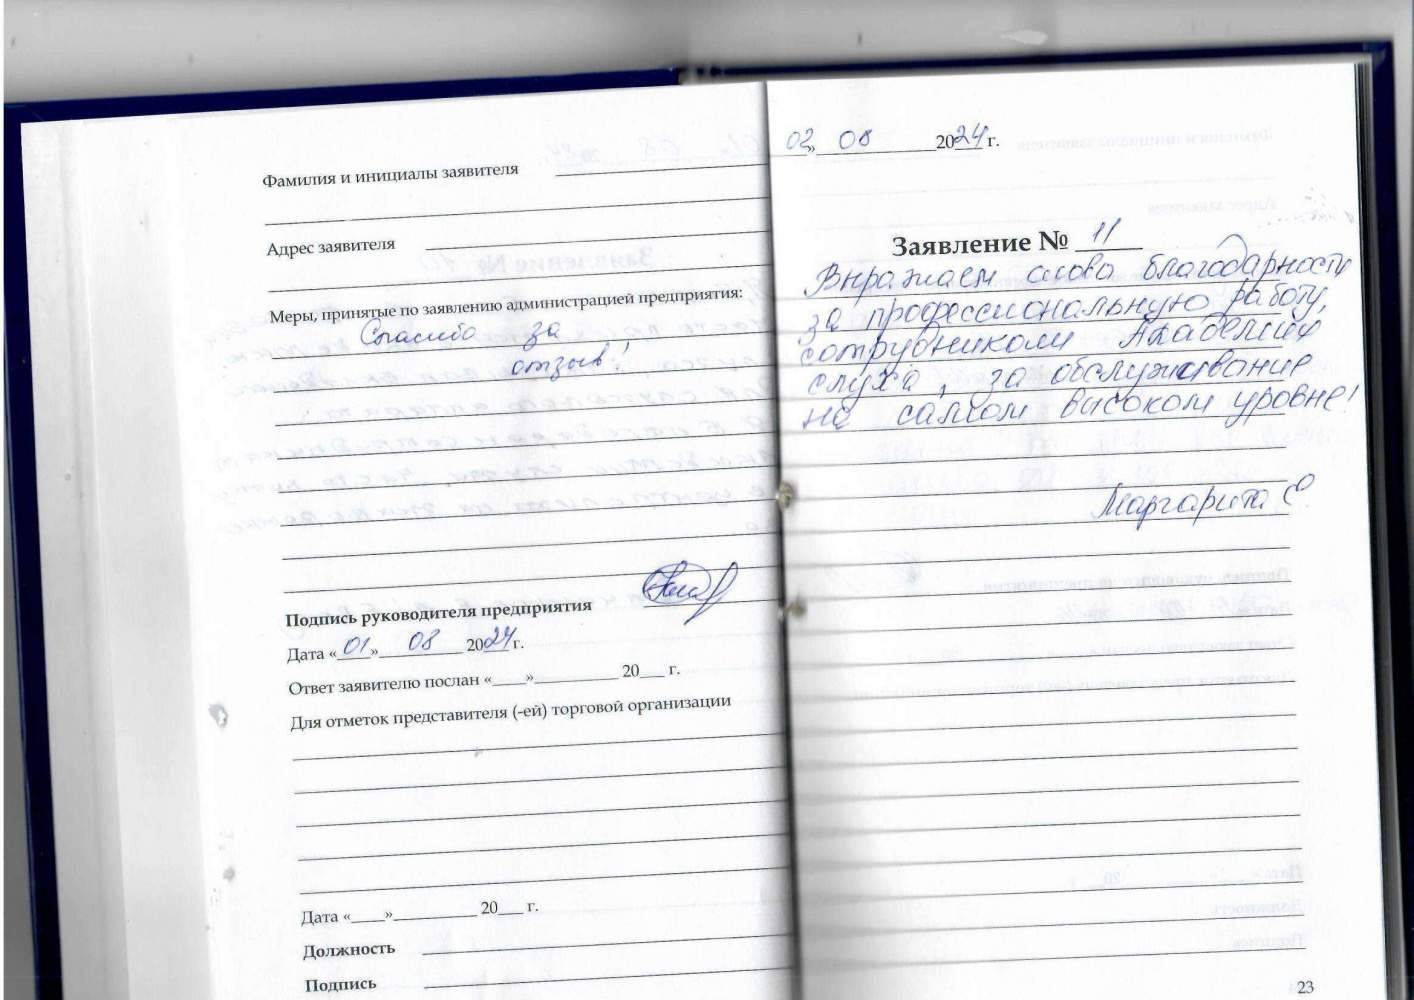 Фамилия и инициалы заявителя
Адрес заявителя
Меры, принятые по заявлению администрацией предприятия:
Спасибо за
отзыв!
Подпись руководителя предприятия
Дата «01» 08 2024 г.
Ответ заявителю послан «____»__________ 20___ г.
Для отметок представителя (-ей) торговой организации
Дата «____»__________ 20___ г.
Должность
Подпись
02» 08 2024 г.
Заявление № 11
Выражаем слова благодарности
за профессиональную работу,
сотрудникам Академии
слуха, за обслуживание
на самом высоком уровне!
Маргарита С.
23